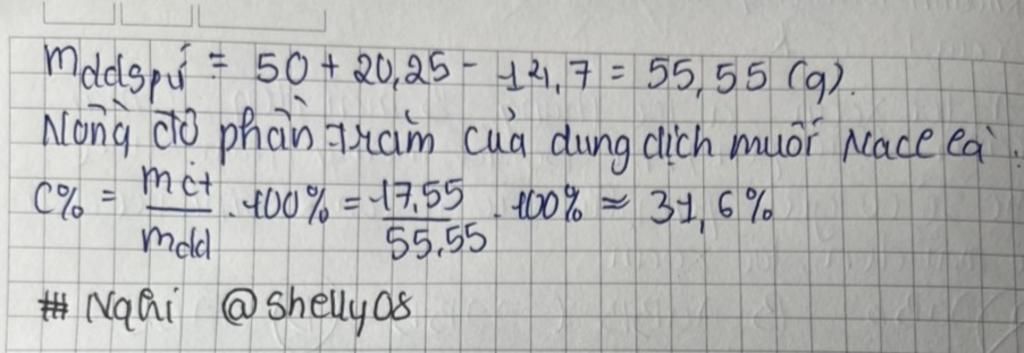 mddspứ = 50 + 20,25 - 14,7 = 55,55 (g).
Nồng độ phần trăm của dung dịch muối Nacl là:
C% = mct/mdd . 100% = 17,55/55,55 . 100% ≈ 31,6%
# Nghi @shelly08